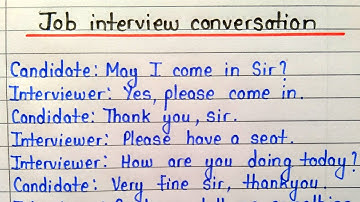 Job interview conversation
Candidate: May I come in Sir?
Interviewer: Yes, please come in.
Candidate: Thank you, sir.
Interviewer: Please have a seat.
Interviewer: How are you doing today?
Candidate: Very fine sir, thankyou.